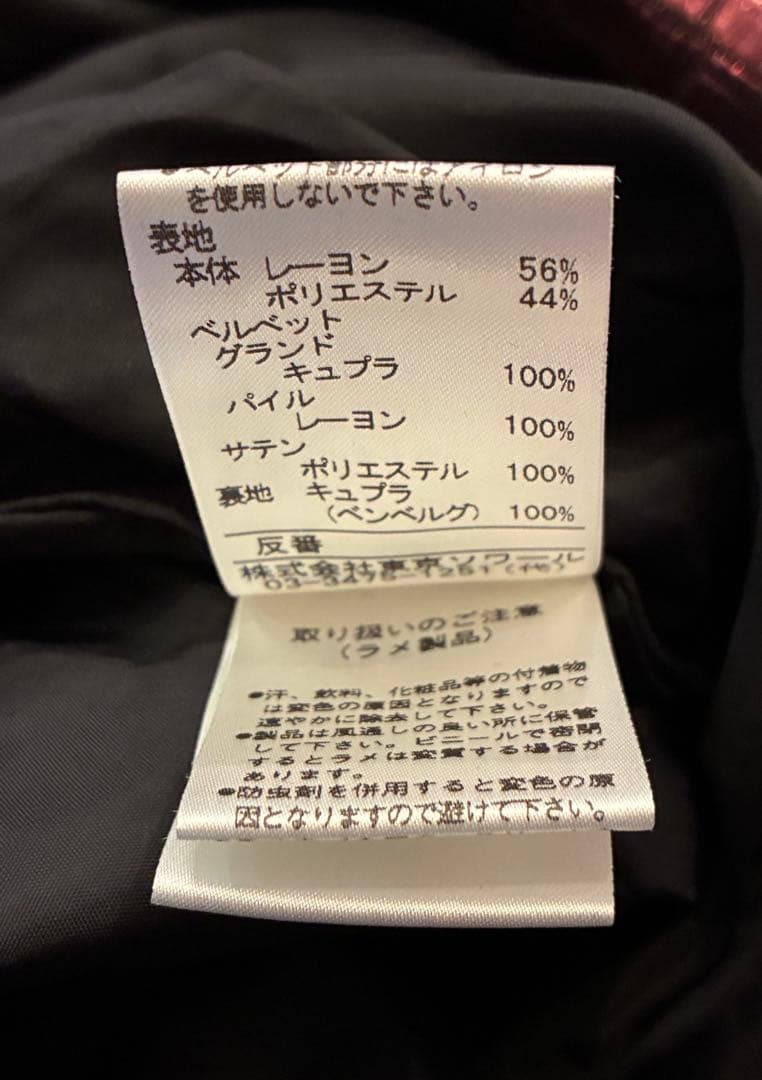 ●ベルベット部分にはアイロン
を使用しないで下さい。
表地
本体 レーヨン 56%
ポリエステル 44%
ベルベット
グランド
キュプラ 100%
パイル
レーヨン 100%
サテン
ポリエステル 100%
裏地 キュプラ
(ベンベルグ) 100%
反番
株式会社東京ソワール
03-3475-1251(代)
取り扱いのご注意
(ラメ製品)
●汗、飲料、化粧品等の付着物
は変色の原因となりますので
速やかに除去して下さい。
●製品は風通しの良い所に保管
して下さい。ビニールで密閉
するとラメは変質する場合が
あります。
●防虫剤を併用すると変色の原
因となりますので避けて下さい。